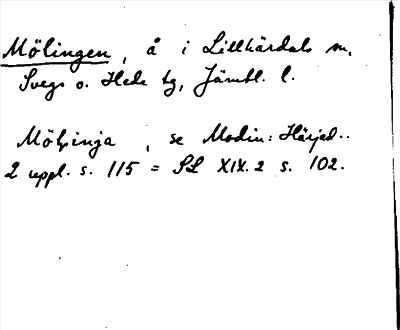 Mölingen, å i Lillhärdals sn,
Svegs o. Hede tg, Jämtl. l.
Möʰinja, se Modin: Härjed..
2 uppl. s. 115 = SL XIX.2 s. 102.